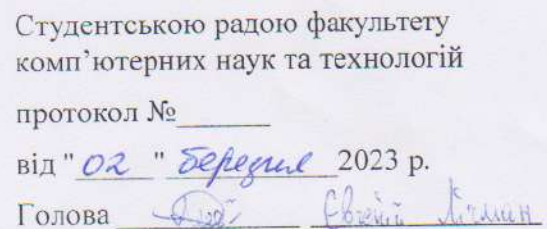 Студентською радою факультету
комп’ютерних наук та технологій
протокол №______
від "02" березня 2023 р.
Голова ______ Євгеній Лічман